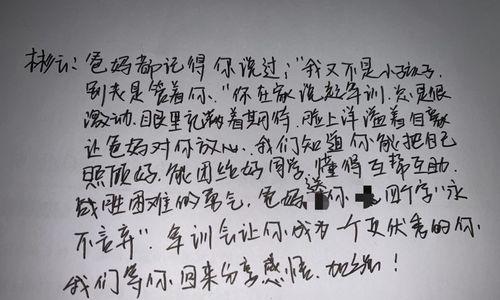 彬云：爸妈都记得你说过："我又不是小孩子，
别老是管着你."你在家说起军训，总是很
激动，眼里充满着期待，脸上洋溢着自豪
让爸妈对你放心. 我们知道你能把自己
照顾好，能团结好同学，懂得互帮互助，
战胜困难的勇气，爸妈送你 四个字"永
不言弃". 军训会让你成为一个更优秀的你，
我们等你回来分享感悟. 加油！